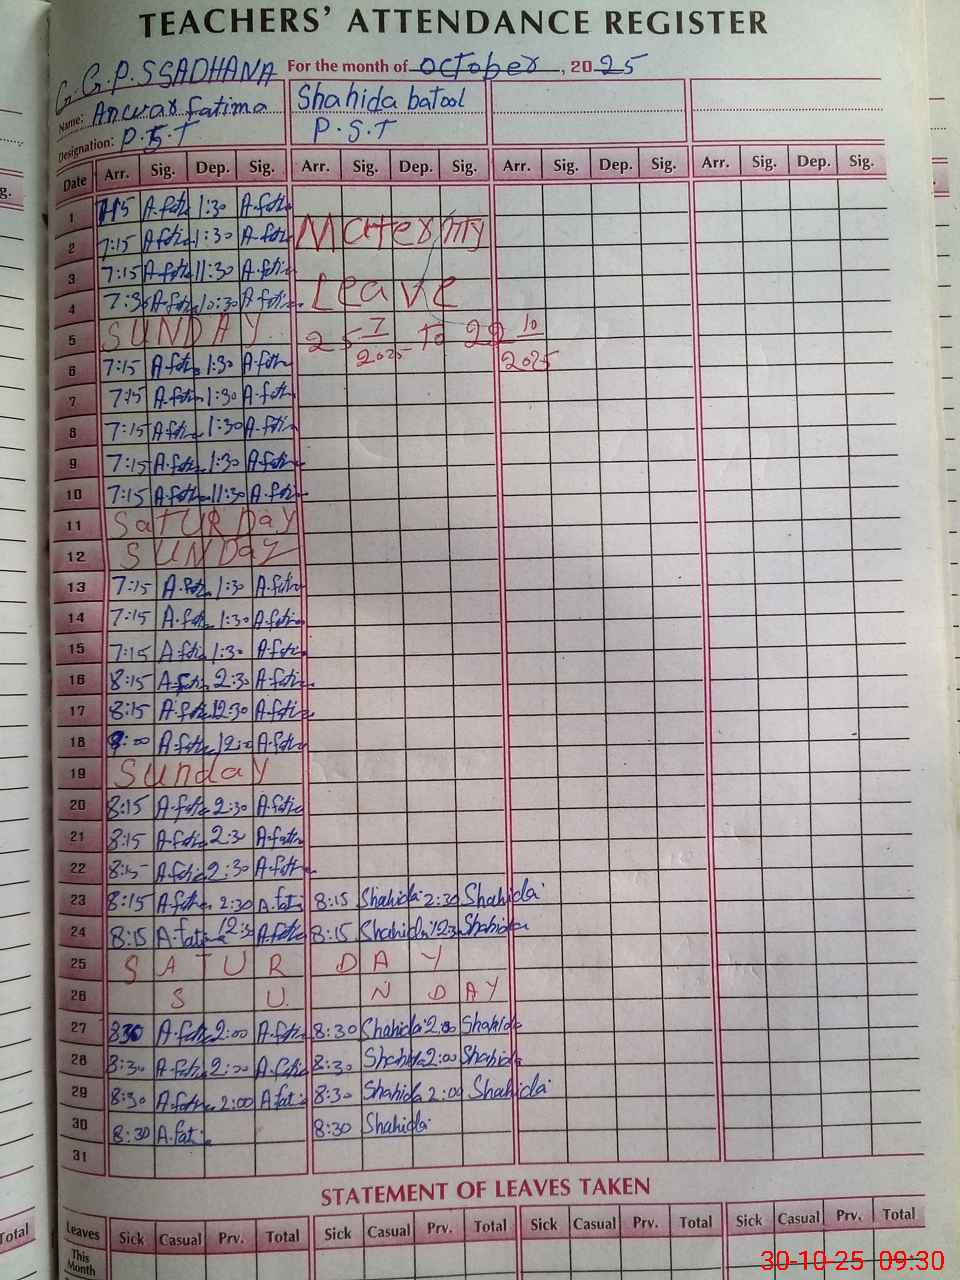 TEACHERS' ATTENDANCE REGISTER
G.G.P.S SADHANA For the month of October, 2025
Name: Anwar fatima Shahida batool
Designation: P.S.T P.S.T
Date Arr. Sig. Dep. Sig. Arr. Sig. Dep. Sig. Arr. Sig. Dep. Sig. Arr. Sig. Dep. Sig.
1 7:15 A.fati 1:30 A.fati
2 7:15 A.fati 1:30 A.fati Maternity
3 7:15 A.fati 1:30 A.fati
4 7:30 A.fati 10:30 A.fati Leave
5 SUNDAY 25 7/2025 To 22 10/2025
6 7:15 A.fati 1:30 A.fati
7 7:15 A.fati 1:30 A.fati
8 7:15 A.fati 1:30 A.fati
9 7:15 A.fati 1:30 A.fati
10 7:15 A.fati 11:30 A.fati
11 SATURDAY
12 SUNDAY
13 7:15 A.fati 1:30 A.fati
14 7:15 A.fati 1:30 A.fati
15 7:15 A.fati 1:30 A.fati
16 8:15 A.fati 2:30 A.fati
17 8:15 A.fati 12:30 A.fati
18 9:00 A.fati 12:00 A.fati
19 Sunday
20 8:15 A.fati 2:30 A.fati
21 8:15 A.fati 2:30 A.fati
22 8:15 A.fati 2:30 A.fati
23 8:15 A.fati 2:30 A.fati 8:15 Shahida 2:30 Shahida
24 8:15 A.fatima 12:30 A.fati 8:15 Shahida 12:30 Shahida
25 SATURDAY
26 SUNDAY
27 830 A.fati 2:00 A.fati 8:30 Shahida 2:00 Shahida
28 8:30 A.fati 2:00 A.fati 8:30 Shahida 2:00 Shahida
29 8:30 A.fati 2:00 A.fati 8:30 Shahida 2:00 Shahida
30 8:30 A.fati 8:30 Shahida
31
STATEMENT OF LEAVES TAKEN
Leaves Sick Casual Prv. Total Sick Casual Prv. Total Sick Casual Prv. Total Sick Casual Prv. Total
This Month
30-10-25 09:30